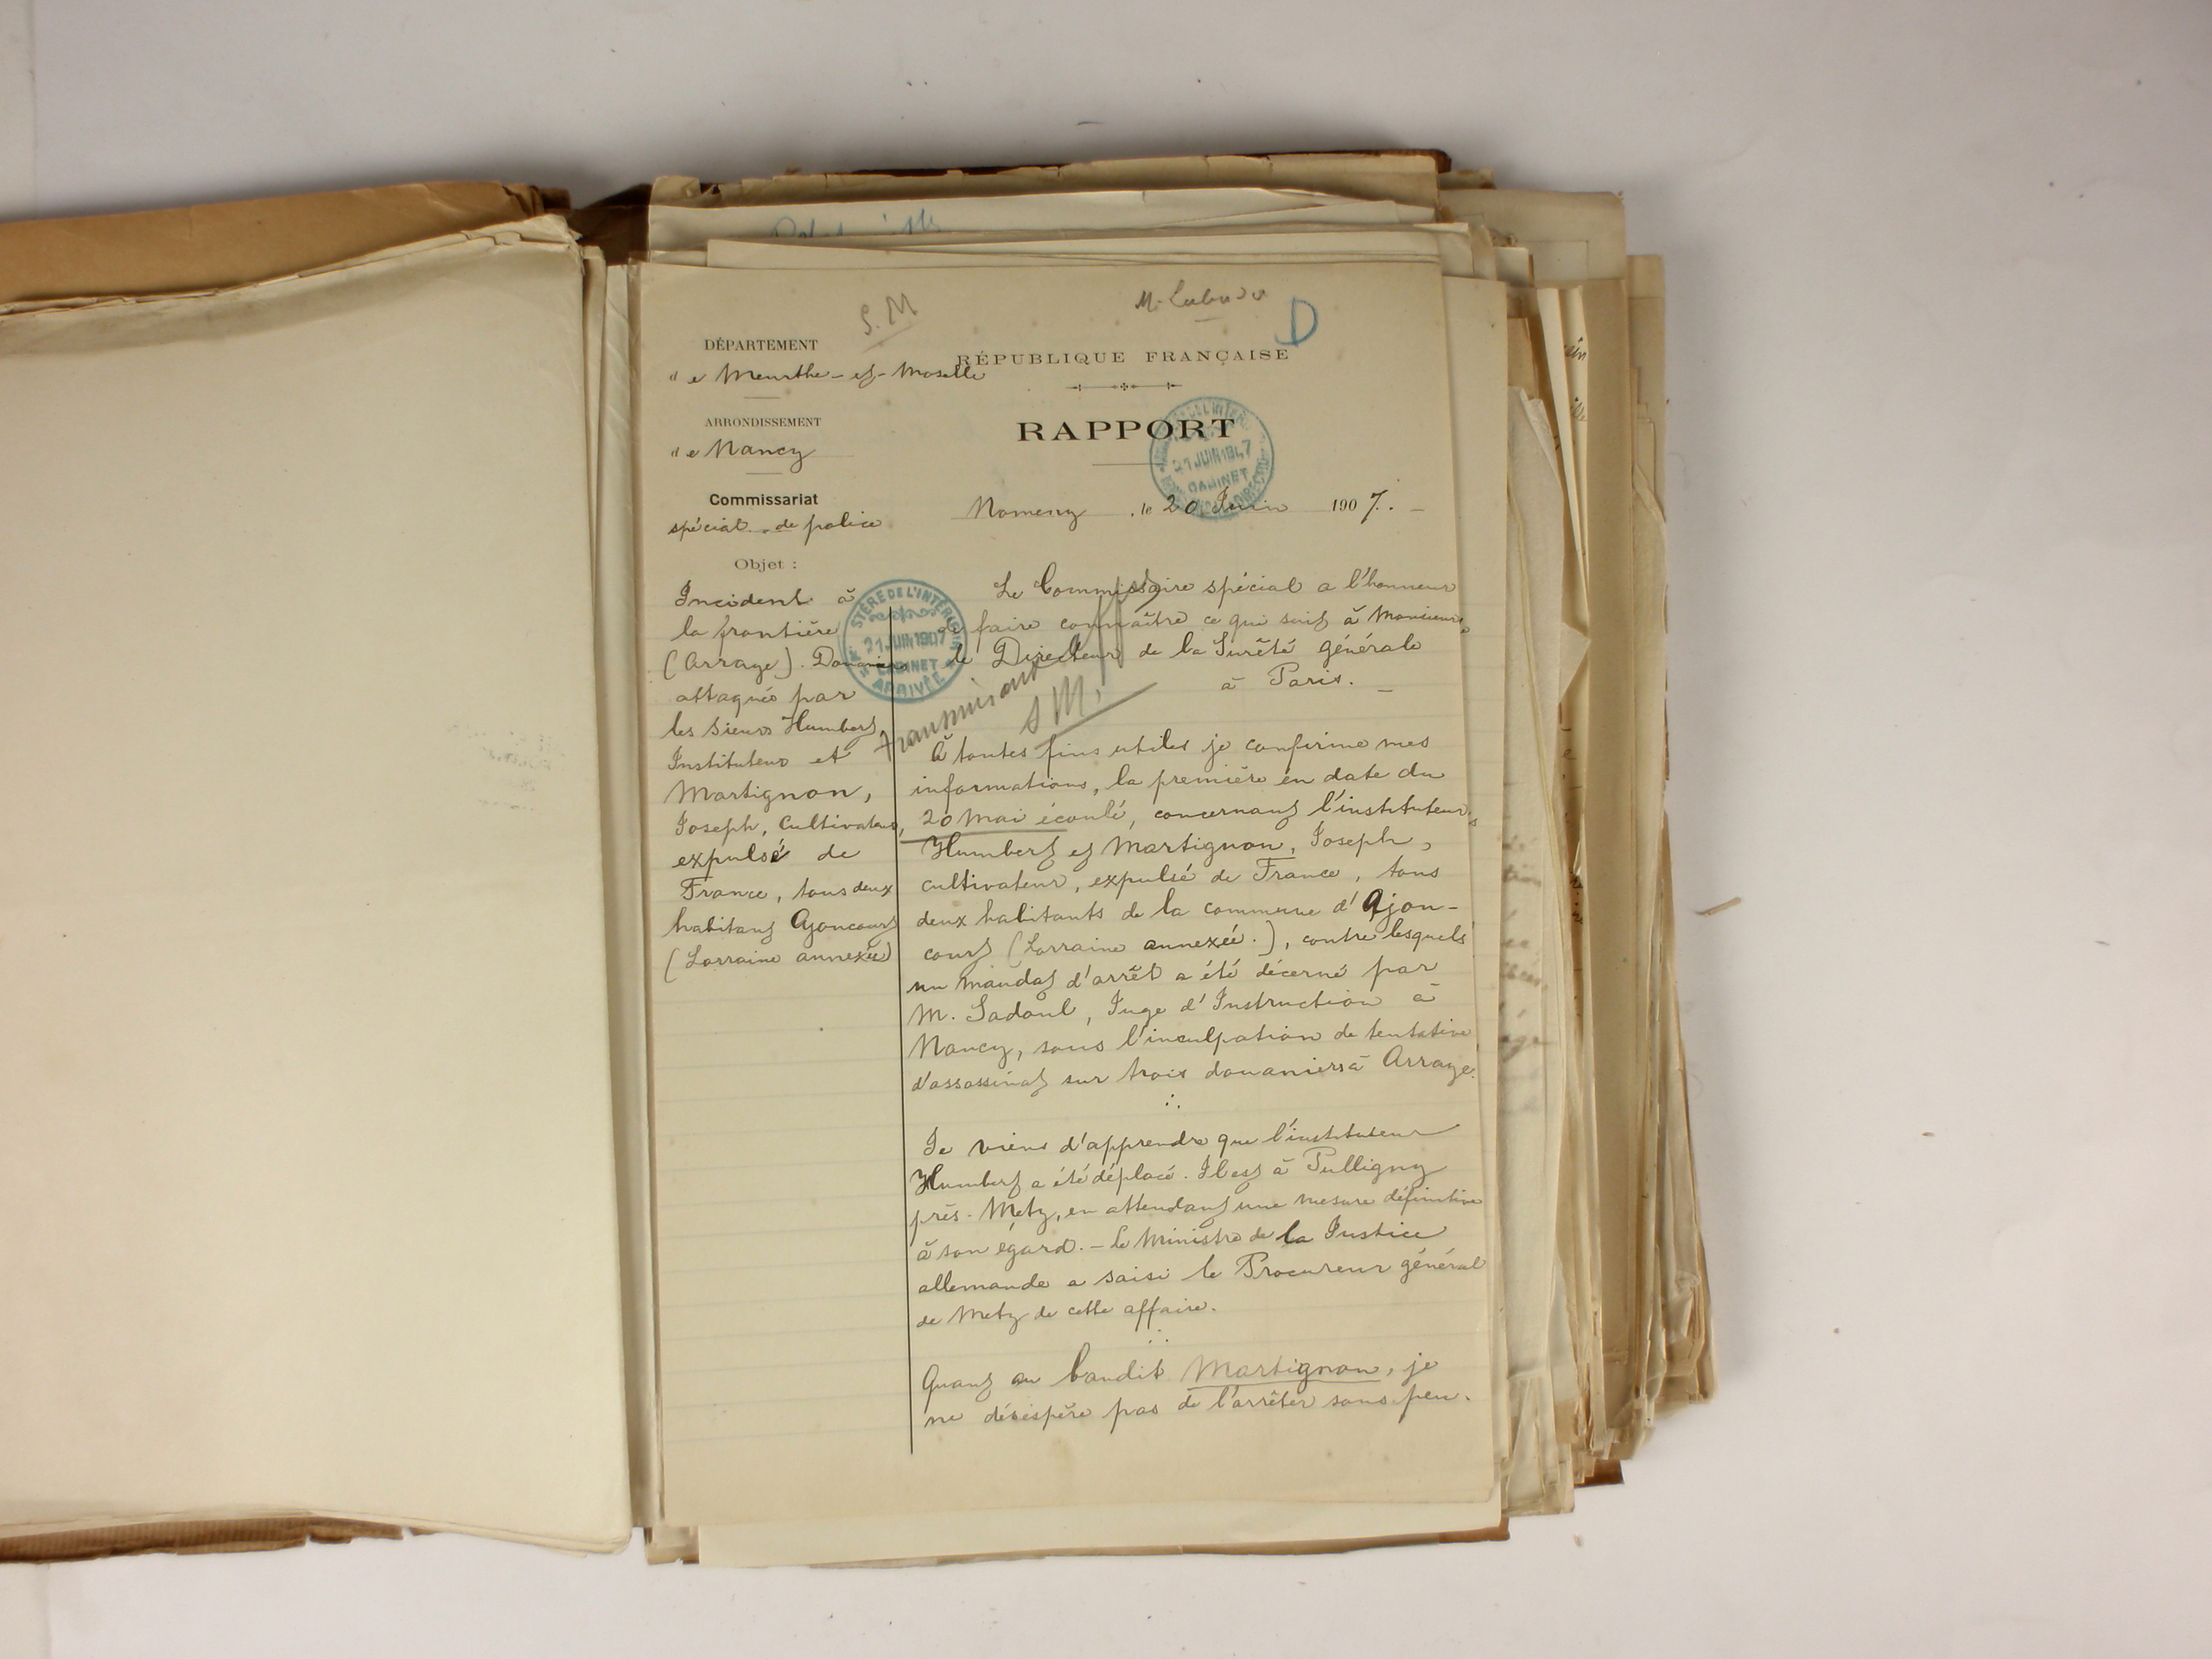 S. M
D
DÉPARTEMENT
de Meurthe-et-Moselle
RÉPUBLIQUE FRANÇAISE
ARRONDISSEMENT
de Nancy
RAPPORT
21 JUIN 1907
CABINET
Commissariat
spécial de police
Nomeny, le 20 Juin 1907. -
Objet :
Incident à
la frontière
(Arraye). Douaniers
attaqués par
les sieurs Humbert,
Instituteur et
Martignon,
Joseph, Cultivateur,
expulsé de
France, tous deux
habitant Ajoncourt
(Lorraine annexée)
MINISTÈRE DE L'INTÉRIEUR
21 JUIN 1907
CABINET
ARRIVÉE
Le Commissaire spécial a l'honneur
de faire connaître ce qui suit à Monsieur
le Directeur de la Sureté générale
à Paris. -
S M.
À toutes fins utiles je confirme mes
informations, la première en date du
20 Mai écoulé, concernant l'instituteur
Humbert et Martignon, Joseph,
cultivateur, expulsé de France, tous
deux habitants de la commune d'Ajon-
court (Lorraine annexée.), contre lesquels
un mandat d'arrêt a été décerné par
M. Sadoul, Juge d'Instruction à
Nancy, sous l'inculpation de tentative
d'assassinat sur trois douaniers à Arraye.
Je viens d'apprendre que l'instituteur
Humbert a été déplacé. Il est à Pulligny
près-Metz, en attendant une mesure définitive
à son égard. - Le Ministre de la Justice
allemande a saisi le Procureur général
de Metz de cette affaire.
Quant au bandit Martignon, je
ne désespère pas de l'arrêter sous peu.